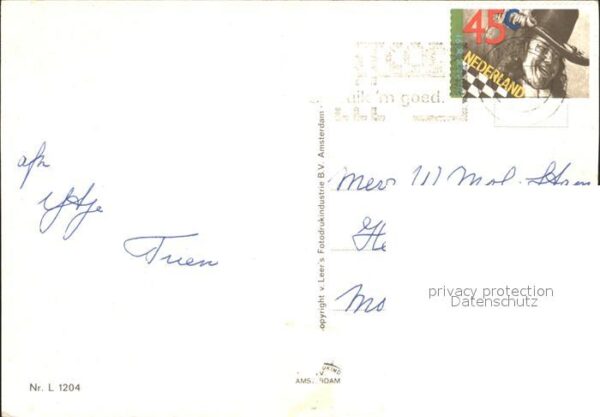 45 c
NEDERLAND
'm goed.
afz
Ytje
Tuen
copyright v. Leer's Fotodrukindustrie B.V. Amsterdam
Mevr
He
Mo
privacy protection
Datenschutz
AMSTERDAM
Nr. L 1204